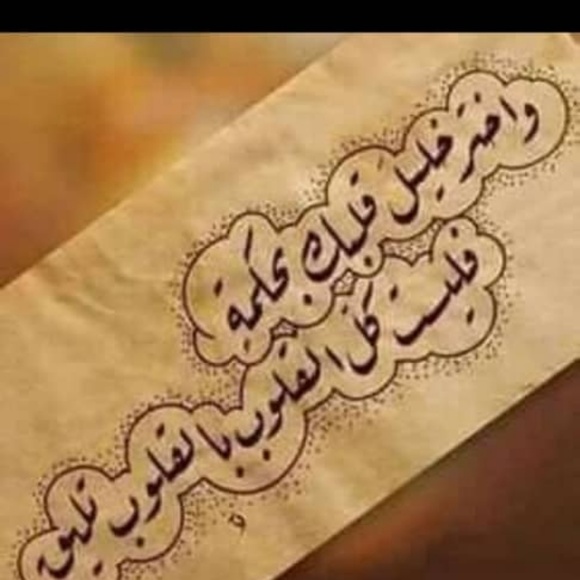 واختر خليل قلبك بحكمة
فليست كل القلوب بالقلوب تليق